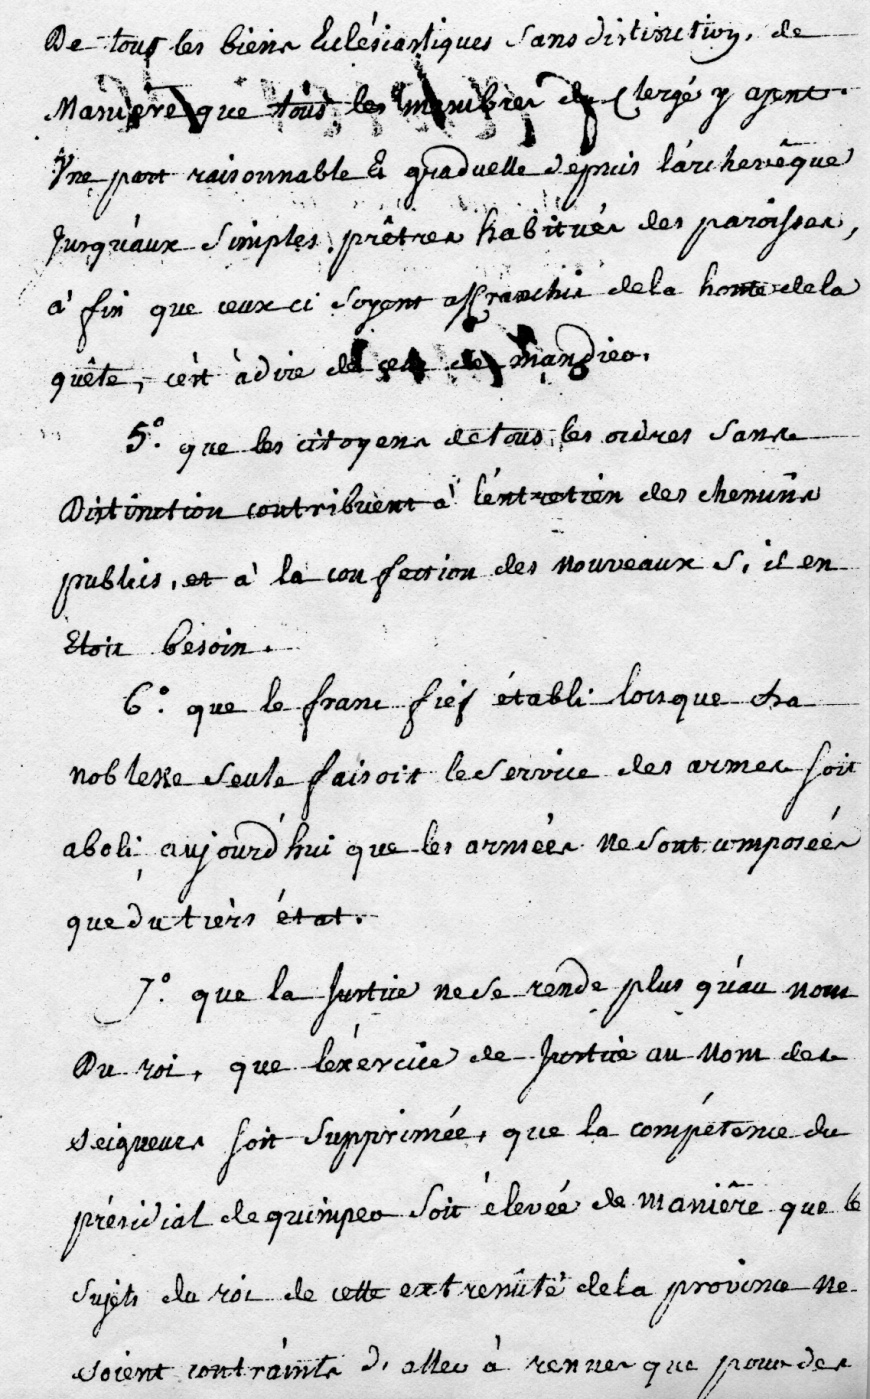 De tous les biens Eclésiastiques sans distinction, de
Maniere que tous les membres du Clergé y ayent
Une part raisonnable Et graduelle depuis l'archevêque
Jusqu'aux simples prêtres habitués des paroisses,
à fin que ceux ci soyent affranchis de la honte de la
quête, c'est à dire de celle de mandier.
5º. que les citoyens de tous les ordres sans
Distinction contribuent à l'éntretien des chemins
publics, et à la confection des nouveaux s'il en
Etoit besoin.
6º. que le franc fief établi lorsque la
noblesse seule faisoit le service des armes soit
aboli aujourd'hui que les armées ne sont composées
que du tièrs état.
7º. que la Justice ne se rende plus qu'au nom
Du roi, que l'éxercice de Justice au Nom des
seigneurs soit supprimée, que la compétence du
présidial de quimper soit élevée de maniêre que le
sujets du roi de cette extremité de la province ne
soient contraints d'aller à rennes que pour des